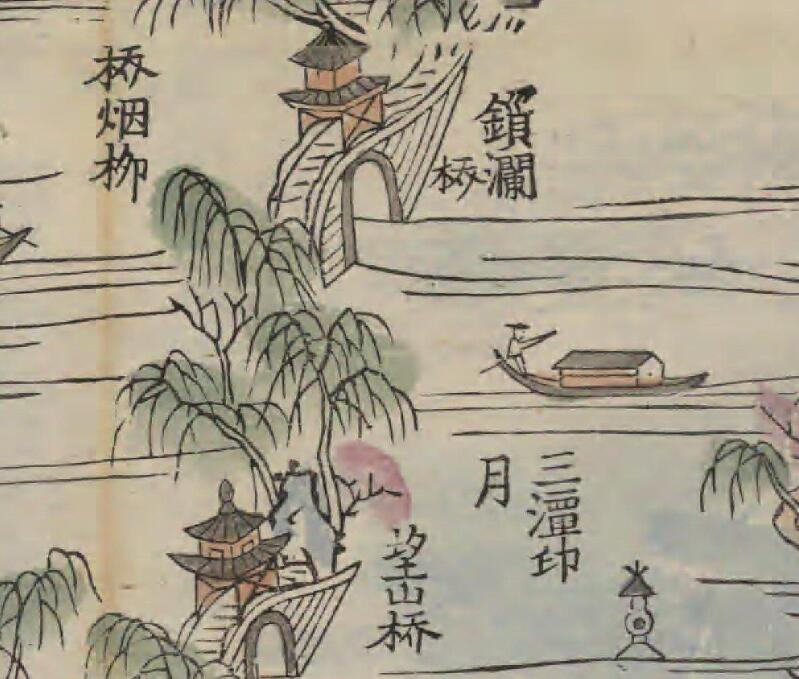 鎖瀾
桥
桥烟柳
三潭印
月
望山桥